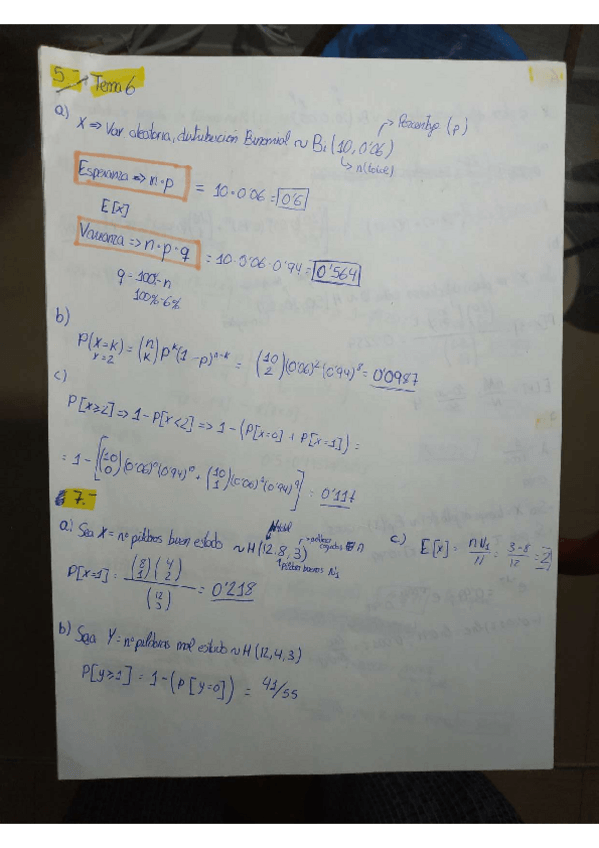 5. Tema 6
a)
X => Var aleatoria, distribución Binomial ~ Bi (10, 0'06)
↳ Porcentaje (p)
↳ n (total)
Esperanza => n·p = 10·0'06 = 0'6
E[x]
Varianza => n·p·q = 10·0'06·0'94 = 0'564
q = 100% - n
100% - 6%
b)
P(X=k) = (n k) p^k (1-p)^n-k = (10 2) (0'06)^2 (0'94)^8 = 0'0987
x=2
c)
P[x≥2] => 1-P[x<2] => 1-(P[x=0] + P[x=1]) =
= 1- [(10 0) (0'06)^0 (0'94)^10 + (10 1) (0'06)^1 (0'94)^9] = 0'117
7.-
a.) Sea X = nº pilas buen estado ~ H (12, 8, 3)
N total
n
buenos N1
P[x=1] = (8 1) (4 2) / (12 3) = 0'218
c.) E[x] = n N1 / N = 3·8 / 12 = 2
b) Sea Y = nº mal estado ~ H (12, 4, 3)
P[y≥1] = 1-(P[y=0]) = 41/55